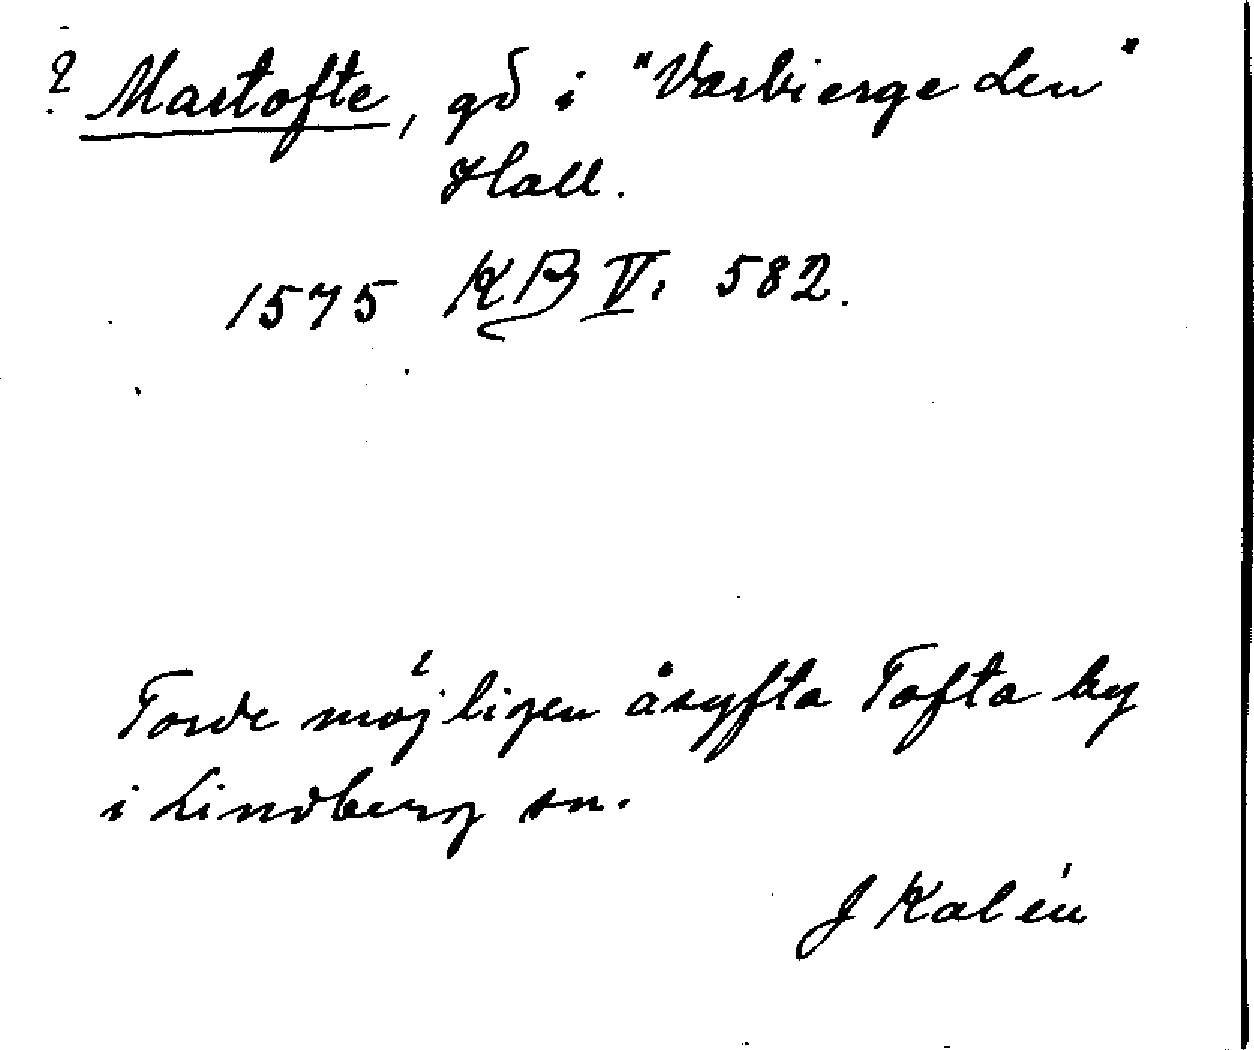 ? Mastofte, gd i "Varbierge Len"
Hall.
1575 KB V. 582.
Torde möjligen åsyfta Tofta by
i Lindberg sn.
J Kalén